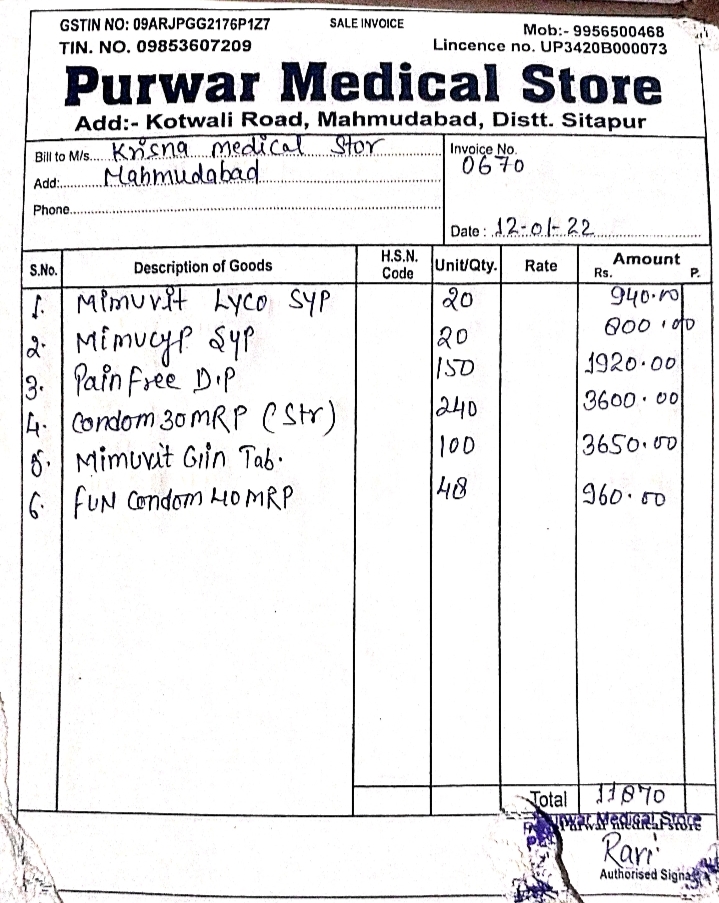 GSTIN NO: 09ARJPGG2176P1Z7 SALE INVOICE Mob:- 9956500468
TIN. NO. 09853607209 Lincence no. UP3420B000073
Purwar Medical Store
Add:- Kotwali Road, Mahmudabad, Distt. Sitapur
Bill to M/s.... Krisna medical Stor Invoice No.
0670
Add:...... Mahmudabad
Phone
Date : 12-01-22
S.No. Description of Goods H.S.N. Code Unit/Qty. Rate Amount
Rs. P.
1. Mimuvit LYCO SYP 20 940.00
2. Mimucyp SYP 20 800.00
3. Pain free D.P 150 1920.00
4. Condom 30 MRP (Str) 240 3600.00
5. Mimuvit Giin Tab. 100 3650.00
6. FUN Condom 40 MRP 48 960.00
Total 11870
Purwar Medical Store
Purwar medical store
Ravi
Authorised